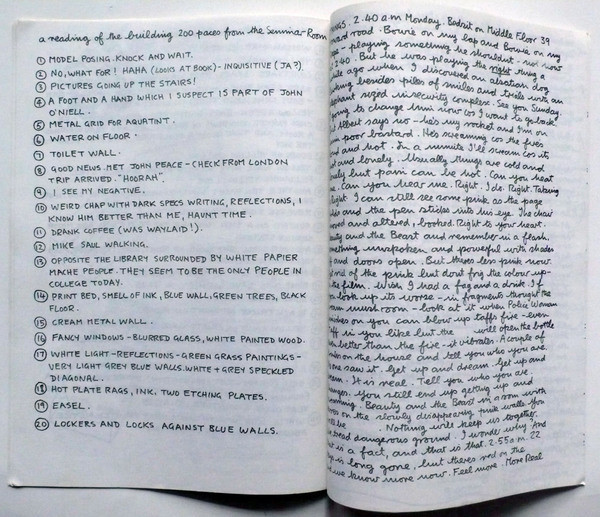 a reading of the building 200 paces from the Seminar Room
① MODEL POSING. KNOCK AND WAIT.
② NO, WHAT FOR! HAHA (LOOKS AT BOOK) - INQUISITIVE (JA?)
③ PICTURES GOING UP THE STAIRS!
④ A FOOT AND A HAND WHICH I SUSPECT IS PART OF JOHN
O'NIELL.
⑤ METAL GRID FOR AQUATINT.
⑥ WATER ON FLOOR.
⑦ TOILET WALL.
⑧ GOOD NEWS MET JOHN PEACE - CHECK FROM LONDON
TRIP ARRIVED. "HOORAH".
⑨ I SEE MY NEGATIVE.
⑩ WEIRD CHAP WITH DARK SPECS WRITING, REFLECTIONS, I
KNOW HIM BETTER THAN ME, HAUNT TIME.
⑪ DRANK COFFEE (WAS WAYLAID!).
⑫ MIKE SAUL WALKING.
⑬ OPPOSITE THE LIBRARY SURROUNDED BY WHITE PAPIER
MACHE PEOPLE. THEY SEEM TO BE THE ONLY PEOPLE IN
COLLEGE TODAY.
⑭ PRINT BED, SMELL OF INK, BLUE WALL, GREEN TREES, BLACK
FLOOR.
⑮ CREAM METAL WALL.
⑯ FANCY WINDOWS - BLURRED GLASS, WHITE PAINTED WOOD.
⑰ WHITE LIGHT - REFLECTIONS - GREEN GRASS PAINTINGS -
VERY LIGHT GREY BLUE WALLS. WHITE + GREY SPECKLED
DIAGONAL.
⑱ HOT PLATE RAGS, INK. TWO ETCHING PLATES.
⑲ EASEL.
⑳ LOCKERS AND LOCKS AGAINST BLUE WALLS.
2.40 a.m Monday. Bedsit on Middle Floor 39
road. Bowie on my lap and Bowie on my
- playing something he shouldnt - but now
2.40. But he was playing the right thing a
while ago when I discovered an alsation dog
besides piles of smiles and trials with an
elephant sized insecurity complex. See you Sunday.
going to change him now (as I want to go back
Albert says no - he's my rocket and I'm on
poor bastard. He's screaming cos the fires
and hot. In a minute I'll scream cos its
and lonely. Usually things are cold and
but pain can be hot. Can you heat
Can you hear me. Right. I do. Right. Taking
Right I can still see some pink as the page
and the pen sticks into his eye. The chair
moved and altered, booked. Right to your heart.
Beauty and the Beast and remember in a flash.
something unspoken and powerful with shades
and doors open. But theres less pink now.
rid of the pink but dont frig the colour up -
the film. Wish I had a fag and a drink. If
look up its worse - in fragments thought the
mushroom - look at it when Police Woman
on you can blow up taffs five - even
in you like but the will open the bottle
better than the fire - it vibrates. A couple of
on the house and tell you who you are.
one saw it. Get up and dream. Get up and
It is real. Tell you who you are.
you still end up getting up and
Beauty and the Beast in room with
on the slowly disappearing pink walls you
be . Nothing will keep us together.
dangerous ground. I wonder why. And
is a fact, and that is that. 2.55 a.m. 22
is long gone, but theres red on the
we know more now. Feel more. More Real